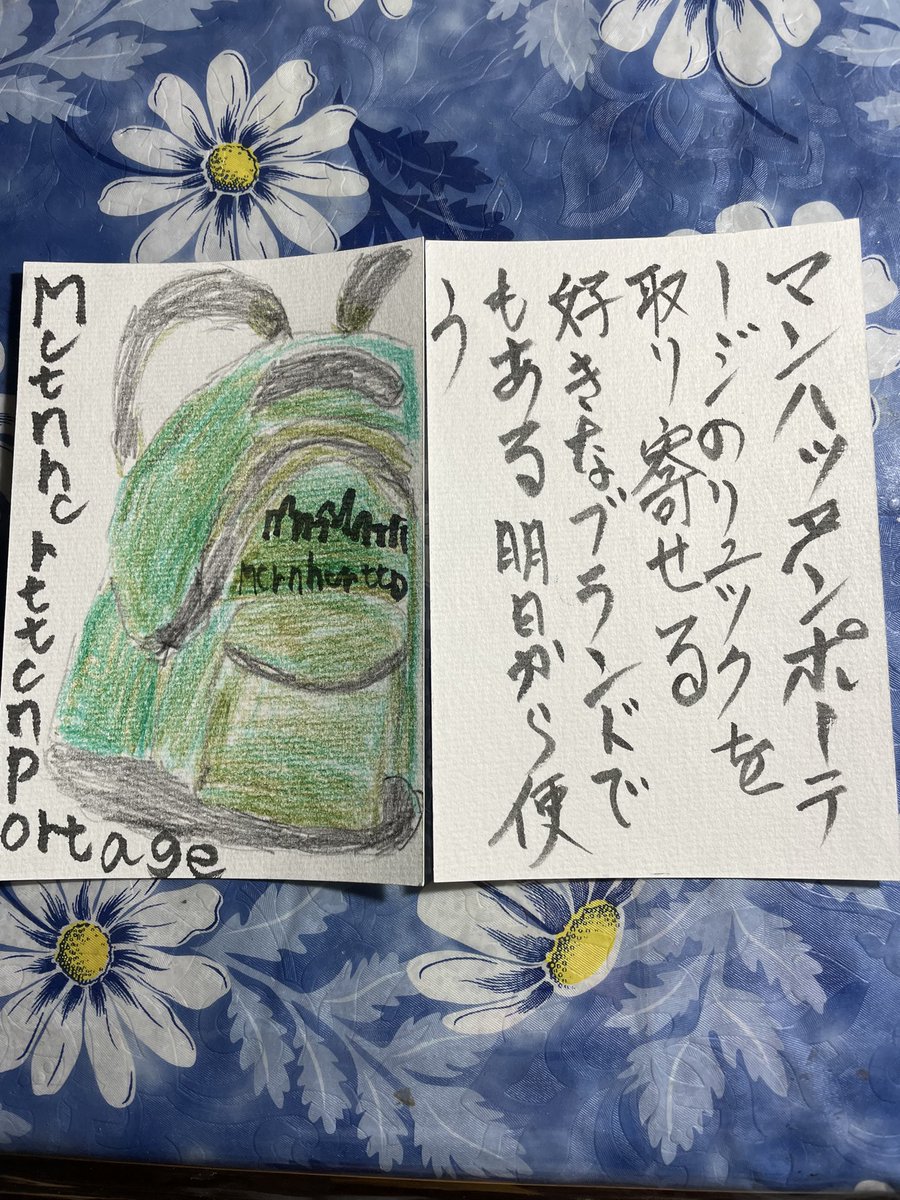 マンハッタンポーテ
ージのリュックを
取り寄せる
好きなブランドで
もある明日から便
う
Mctnhcrttcnp
ortage
mcrnhcrtto